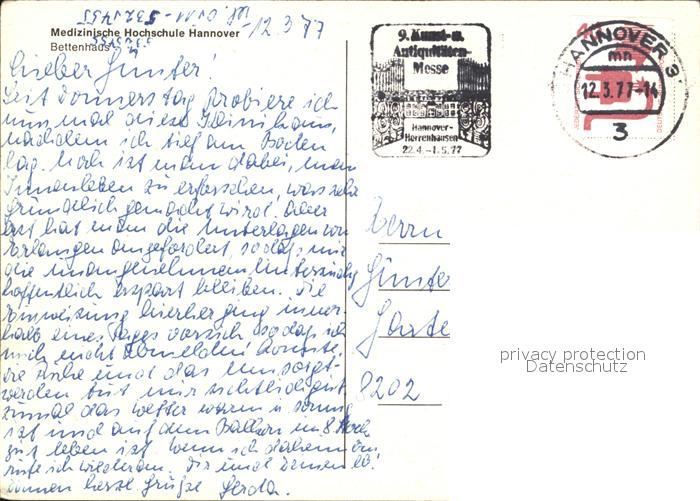 532-1455
12.3.77
Medizinische Hochschule Hannover
Bettenhaus
Lieber Günter!
Seit Donnerstag probiere ich
nun mal diese
nachdem ich tief am Boden
lag. Noch ist man dabei, mein
Innenleben zu erforschen, was sehr
gründlich gemacht wird! Aber
erst hat man die Unterlagen von
Erlangen angefordert, sodaß mir
die unangenehmen Untersuchg
hoffentlich erspart bleiben. Die
Einweisung hierher ging inner-
halb eines Tages vor sich sodaß ich
mich nicht abmelden konnte.
Die Ruhe und das umsorgt-
werden tut mir sichtlich gut
zumal das Wetter warm u. sonnig
ist und auf dem Balkon im 8. Stock
gut leben ist. Wenn ich daheim bin
rufe ich wieder an. Dir und Deinen lb.
herzl. Grüße Gerda.
9. Kunst- u.
Antiquitäten-
Messe
Hannover-
Herrenhausen
22.4.-1.5.77
HANNOVER 3
mn
12.3.77-14
3
Herrn
Günter
8202
privacy protection
Datenschutz